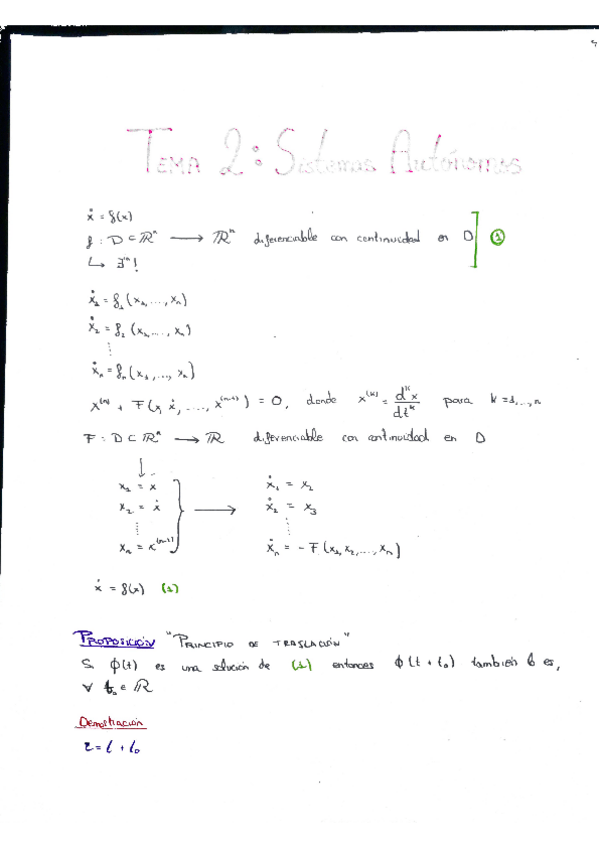 Tema 2: Sistemas Autónomos
ẋ = f(x)
f : D ⊂ ℝⁿ → ℝⁿ diferenciable con continuidad en D ] (1)
↳ ∃ⁿ!
ẋ₁ = f₁(x₁, ..., xₙ)
ẋ₂ = f₂(x₁, ..., xₙ)
⋮
ẋₙ = fₙ(x₁, ..., xₙ)
x⁽ⁿ⁾ + F(x, ẋ, ...., x⁽ⁿ⁻¹⁾) = 0, donde x⁽ᵏ⁾ = dᵏx/dtᵏ para k = 1, ..., n
F : D ⊂ ℝⁿ → ℝ diferenciable con continuidad en D
↓
x₁ = x → ẋ₁ = x₂
x₂ = ẋ ẋ₂ = x₃
⋮ ⋮
xₙ = x⁽ⁿ⁻¹⁾ ẋₙ = - F(x₁, x₂, ..., xₙ)
ẋ = f(x) (1)
Proposición "Principio de traslación"
Si ϕ(t) es una solución de (1) entonces ϕ(t + t₀) también lo es,
∀ t₀ ∈ ℝ
Demostración
τ = t + t₀